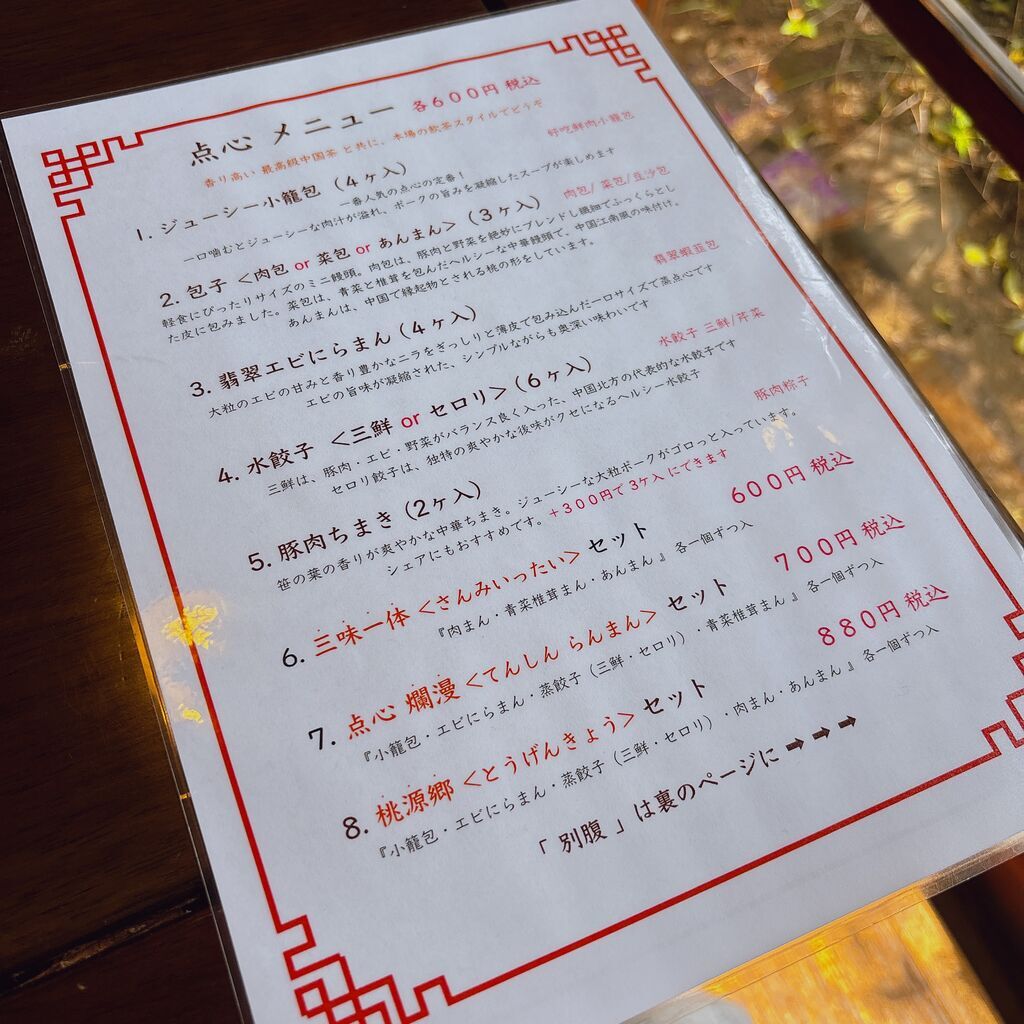 点心 メニュー 各600円 税込
香り高い 最高級中国茶 と共に、本場の飲茶スタイルでどうぞ
好吃鮮肉小籠包
1. ジューシー小籠包 (4ヶ入)
一番人気の点心の定番!
一口噛むとジューシーな肉汁が溢れ、ポークの旨みを凝縮したスープが楽しめます
肉包/ 菜包/豆沙包
2. 包子 <肉包 or 菜包 or あんまん> (3ヶ入)
軽食にぴったりサイズのミニ饅頭。肉包は、豚肉と野菜を絶妙にブレンドし繊細でふっくらとし
た皮に包みました。菜包は、青菜と椎茸を包んだヘルシーな中華饅頭で、中国江南風の味付け。
あんまんは、中国で縁起物とされる桃の形をしています。
翡翠蝦韮包
3. 翡翠エビにらまん (4ヶ入)
大粒のエビの甘みと香り豊かなニラをぎっしりと薄皮で包み込んだ一口サイズで蒸点心です
エビの旨味が凝縮された、シンプルながらも奥深い味わいです
水餃子 三鮮/芹菜
4. 水餃子 <三鮮 or セロリ> (6ヶ入)
三鮮は、豚肉・エビ・野菜がバランス良く入った、中国北方の代表的な水餃子です
セロリ餃子は、独特の爽やかな後味がクセになるヘルシー水餃子
豚肉粽子
5. 豚肉ちまき (2ヶ入)
笹の葉の香りが爽やかな中華ちまき。ジューシーな大粒ポークがゴロっと入っています。
シェアにもおすすめです。+300円で3ケ入 にできます
6. 三味一体 <さんみいったい> セット 600円 税込
『肉まん・青菜椎茸まん・あんまん 』 各一個ずつ入
7. 点心 爛漫 <てんしん らんまん> セット 700円 税込
『小籠包・エビにらまん・蒸餃子 (三鮮・セロリ) ・青菜椎茸まん 』 各一個ずつ入
8. 桃源郷 <とうげんきょう> セット 880円 税込
『小籠包・エビにらまん・蒸餃子 (三鮮・セロリ) ・肉まん・あんまん 』 各一個ずつ入
「 別腹 」は裏のページに ➡ ➡ ➡